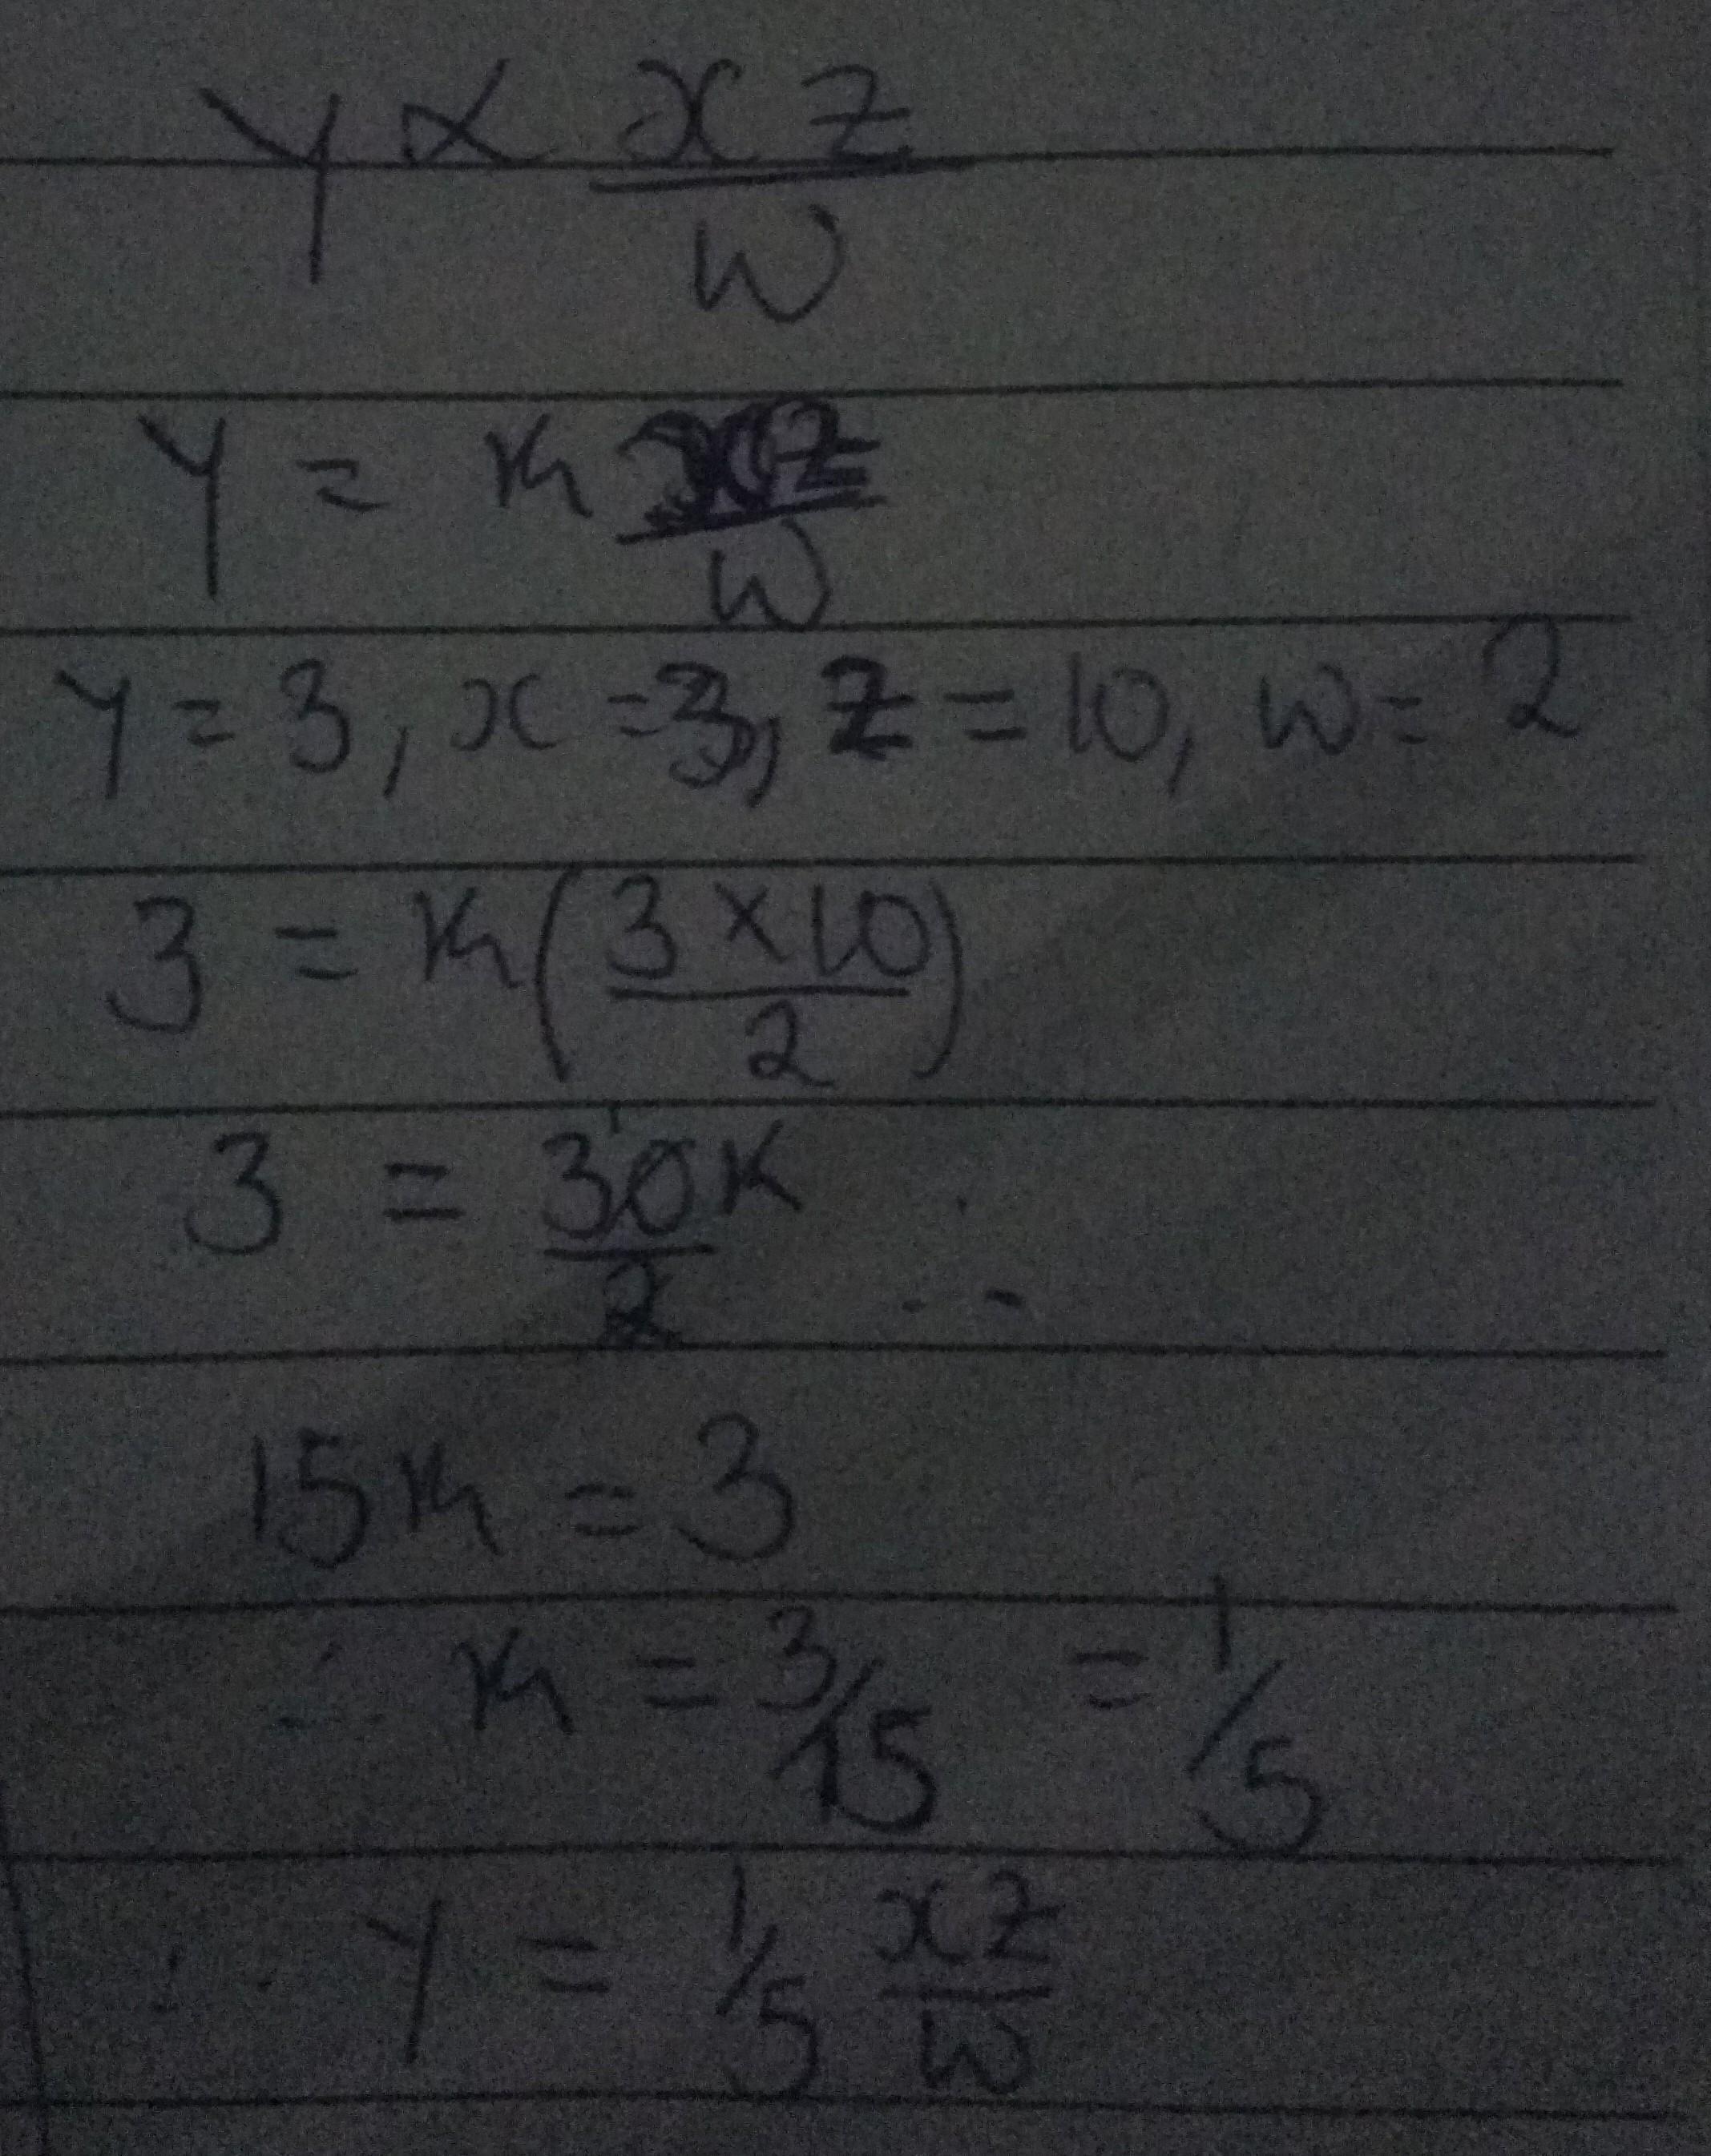 y ∝ xz/w
y = k xz/w
y = 3, x = 3, z = 10, w = 2
3 = k(3 × 10/2)
3 = 30k/2
15k = 3
∴ k = 3/15 = 1/5
∴ y = 1/5 xz/w